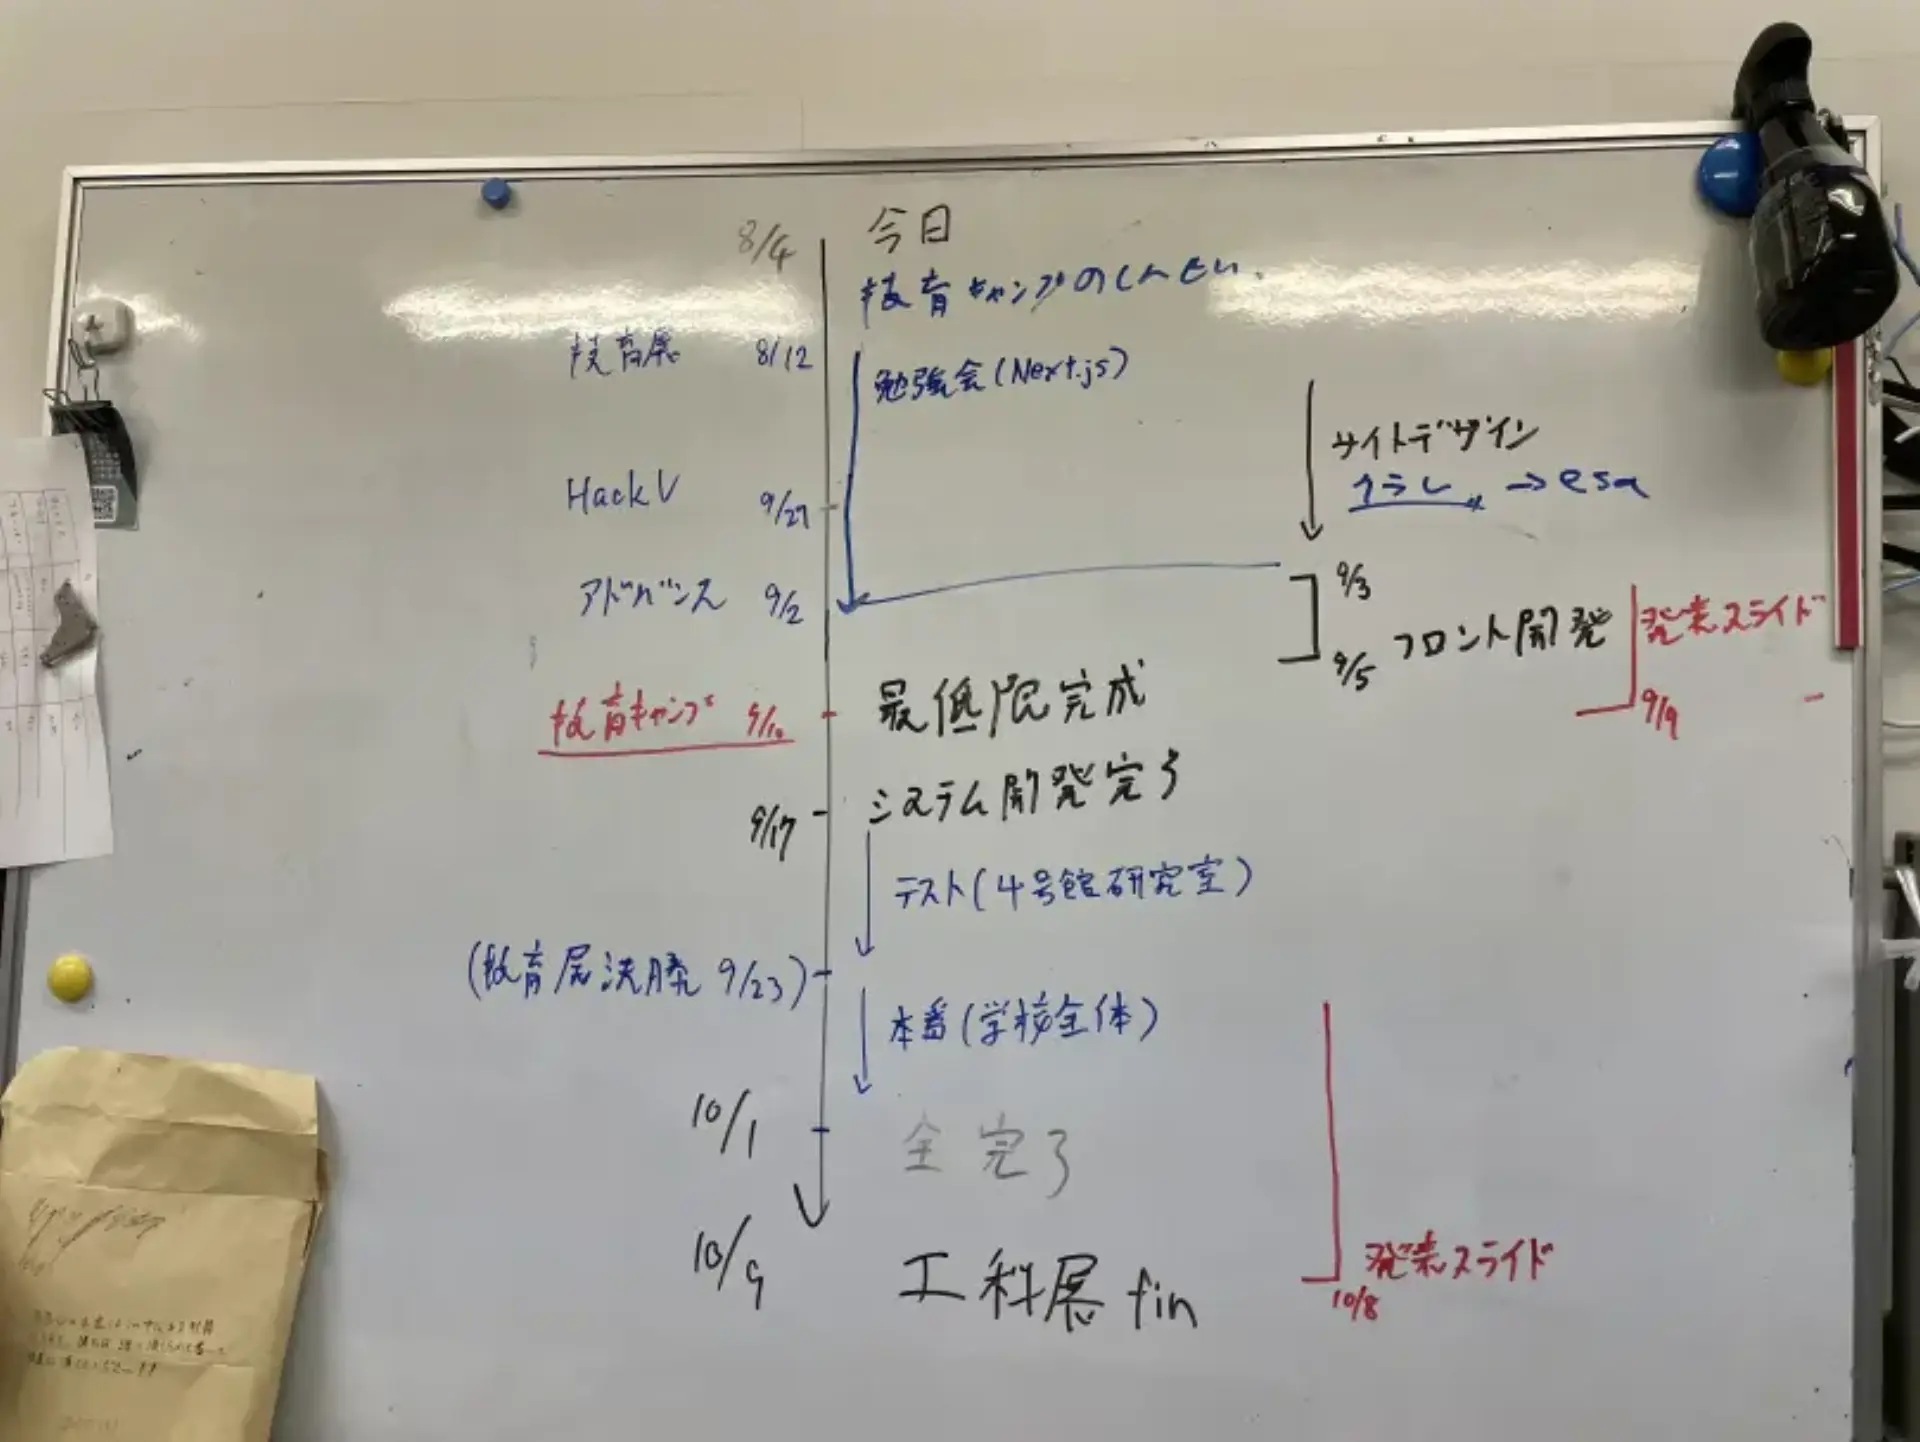 8/4 今日
技育キャンプのしんせい.
技育展 8/12 勉強会(Next.js)
サイトデザイン
→esa
HackV 9/27
アドバンス 9/2
9/3
9/5 フロント開発
発表スライド
9/9
技育キャンプ 9/10 最低限完成
9/17 システム開発完了
テスト(4号館研究室)
(技育展決勝 9/23)
本番(学校全体)
10/1 全完了
10/9 工科展 fin
発表スライド
10/8